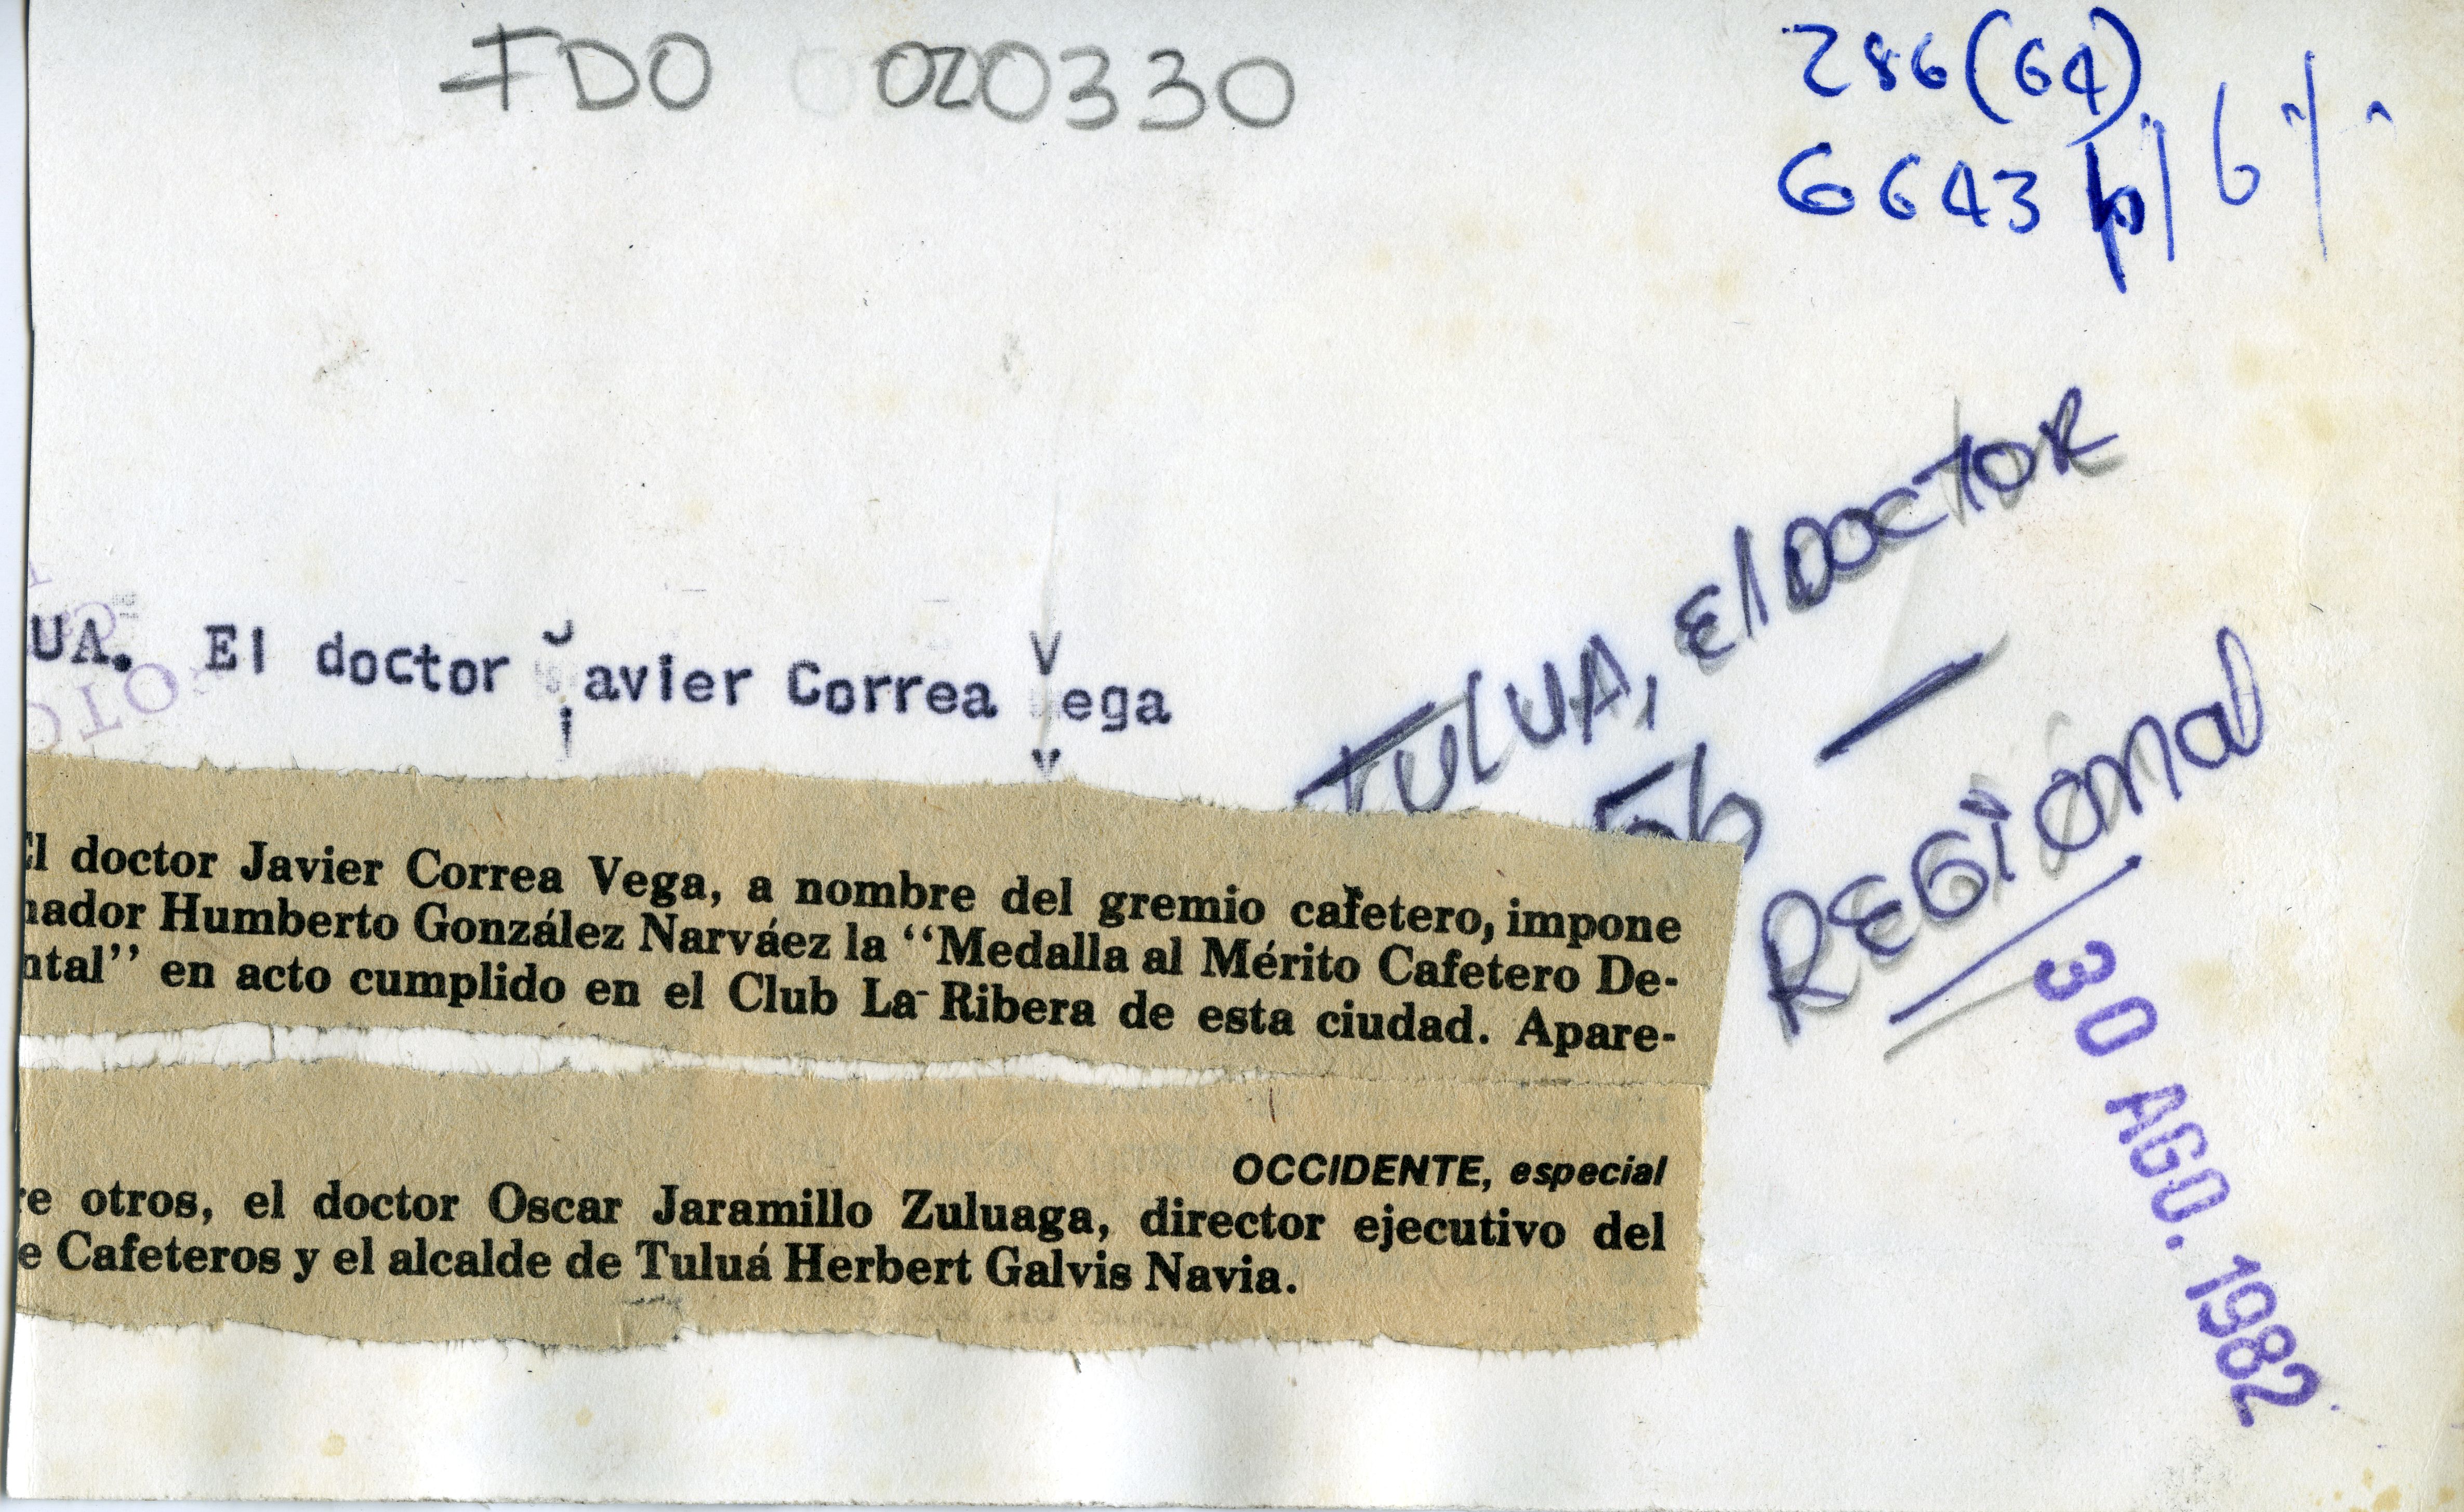 FDO 020330
286(64)
6643
UA. El doctor Javier Correa Vega
TULUA, El DOCTOR
56
REGIONAL
El doctor Javier Correa Vega, a nombre del gremio cafetero, impone
nador Humberto González Narváez la “Medalla al Mérito Cafetero De-
ntal” en acto cumplido en el Club La Ribera de esta ciudad. Apare-
OCCIDENTE, especial
re otros, el doctor Oscar Jaramillo Zuluaga, director ejecutivo del
e Cafeteros y el alcalde de Tuluá Herbert Galvis Navia.
30 AGO. 1982